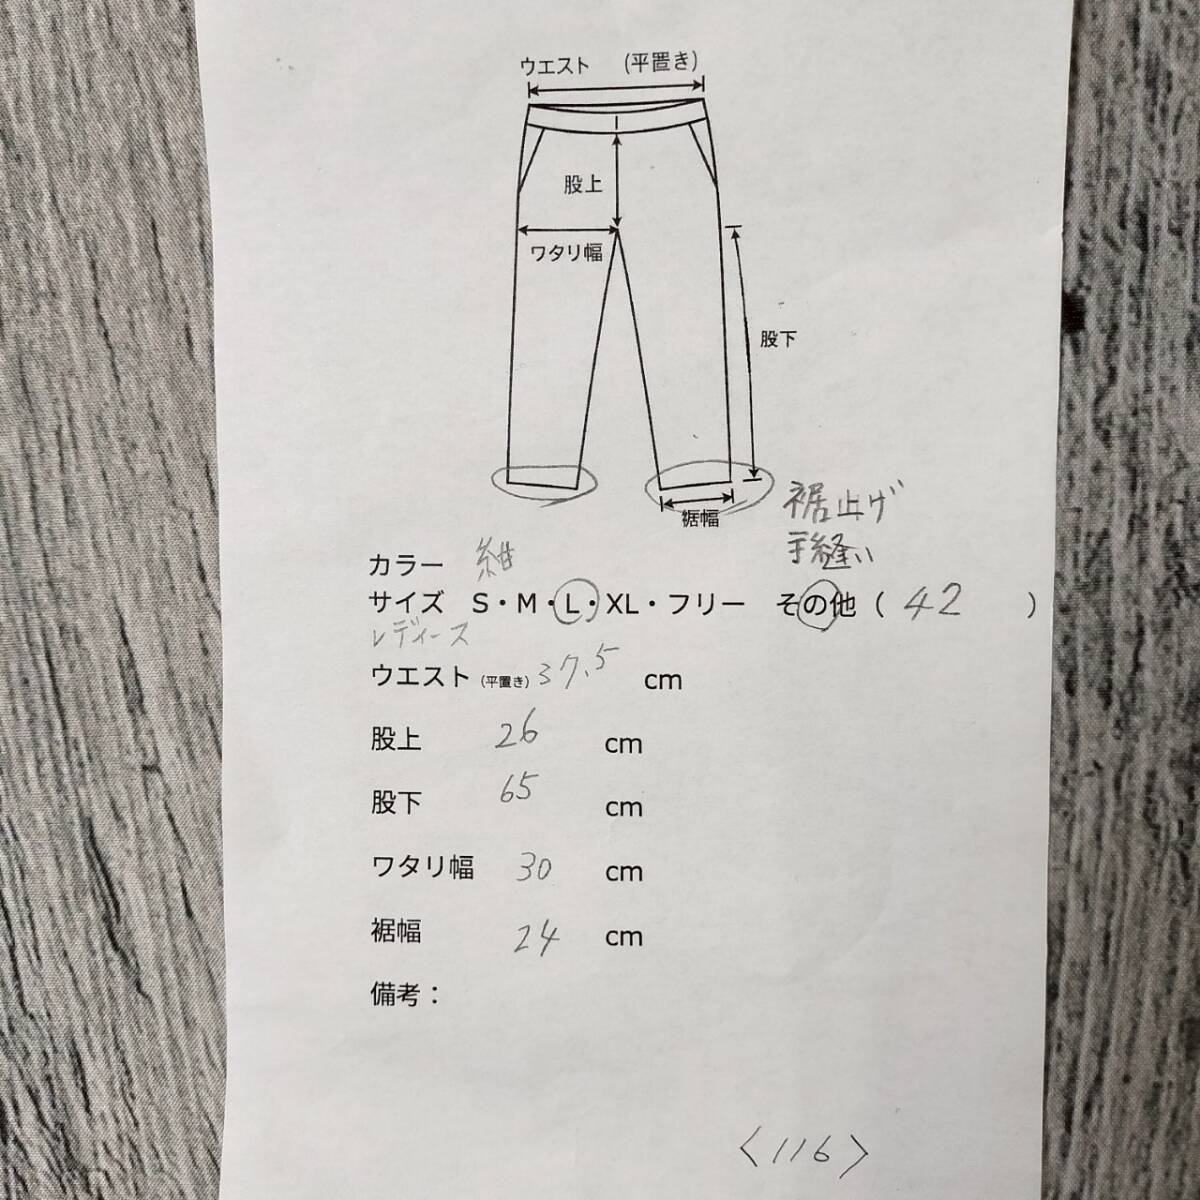 ウエスト (平置き)
股上
ワタリ幅
股下
裾幅
裾上げ
手縫い
カラー 紺
サイズ S・M・L・XL・フリー その他 ( 42 )
レディース
ウエスト (平置き) 37.5 cm
股上 26 cm
股下 65 cm
ワタリ幅 30 cm
裾幅 24 cm
備考：
〈116〉